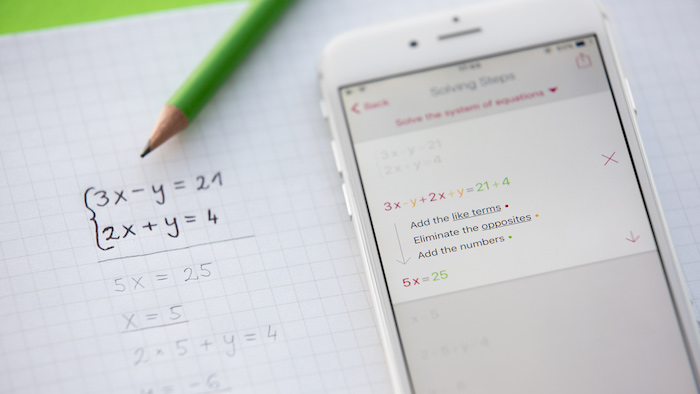 3x - y = 21
2x + y = 4
5x = 25
x = 5
2 * 5 + y = 4
y = -6
Back
Solving Steps
Solve the system of equations
3x-y=21
2x+y=4
3x-y+2x+y=21+4
Add the like terms
Eliminate the opposites
Add the numbers
5x=25
x=5
2·5+y=4